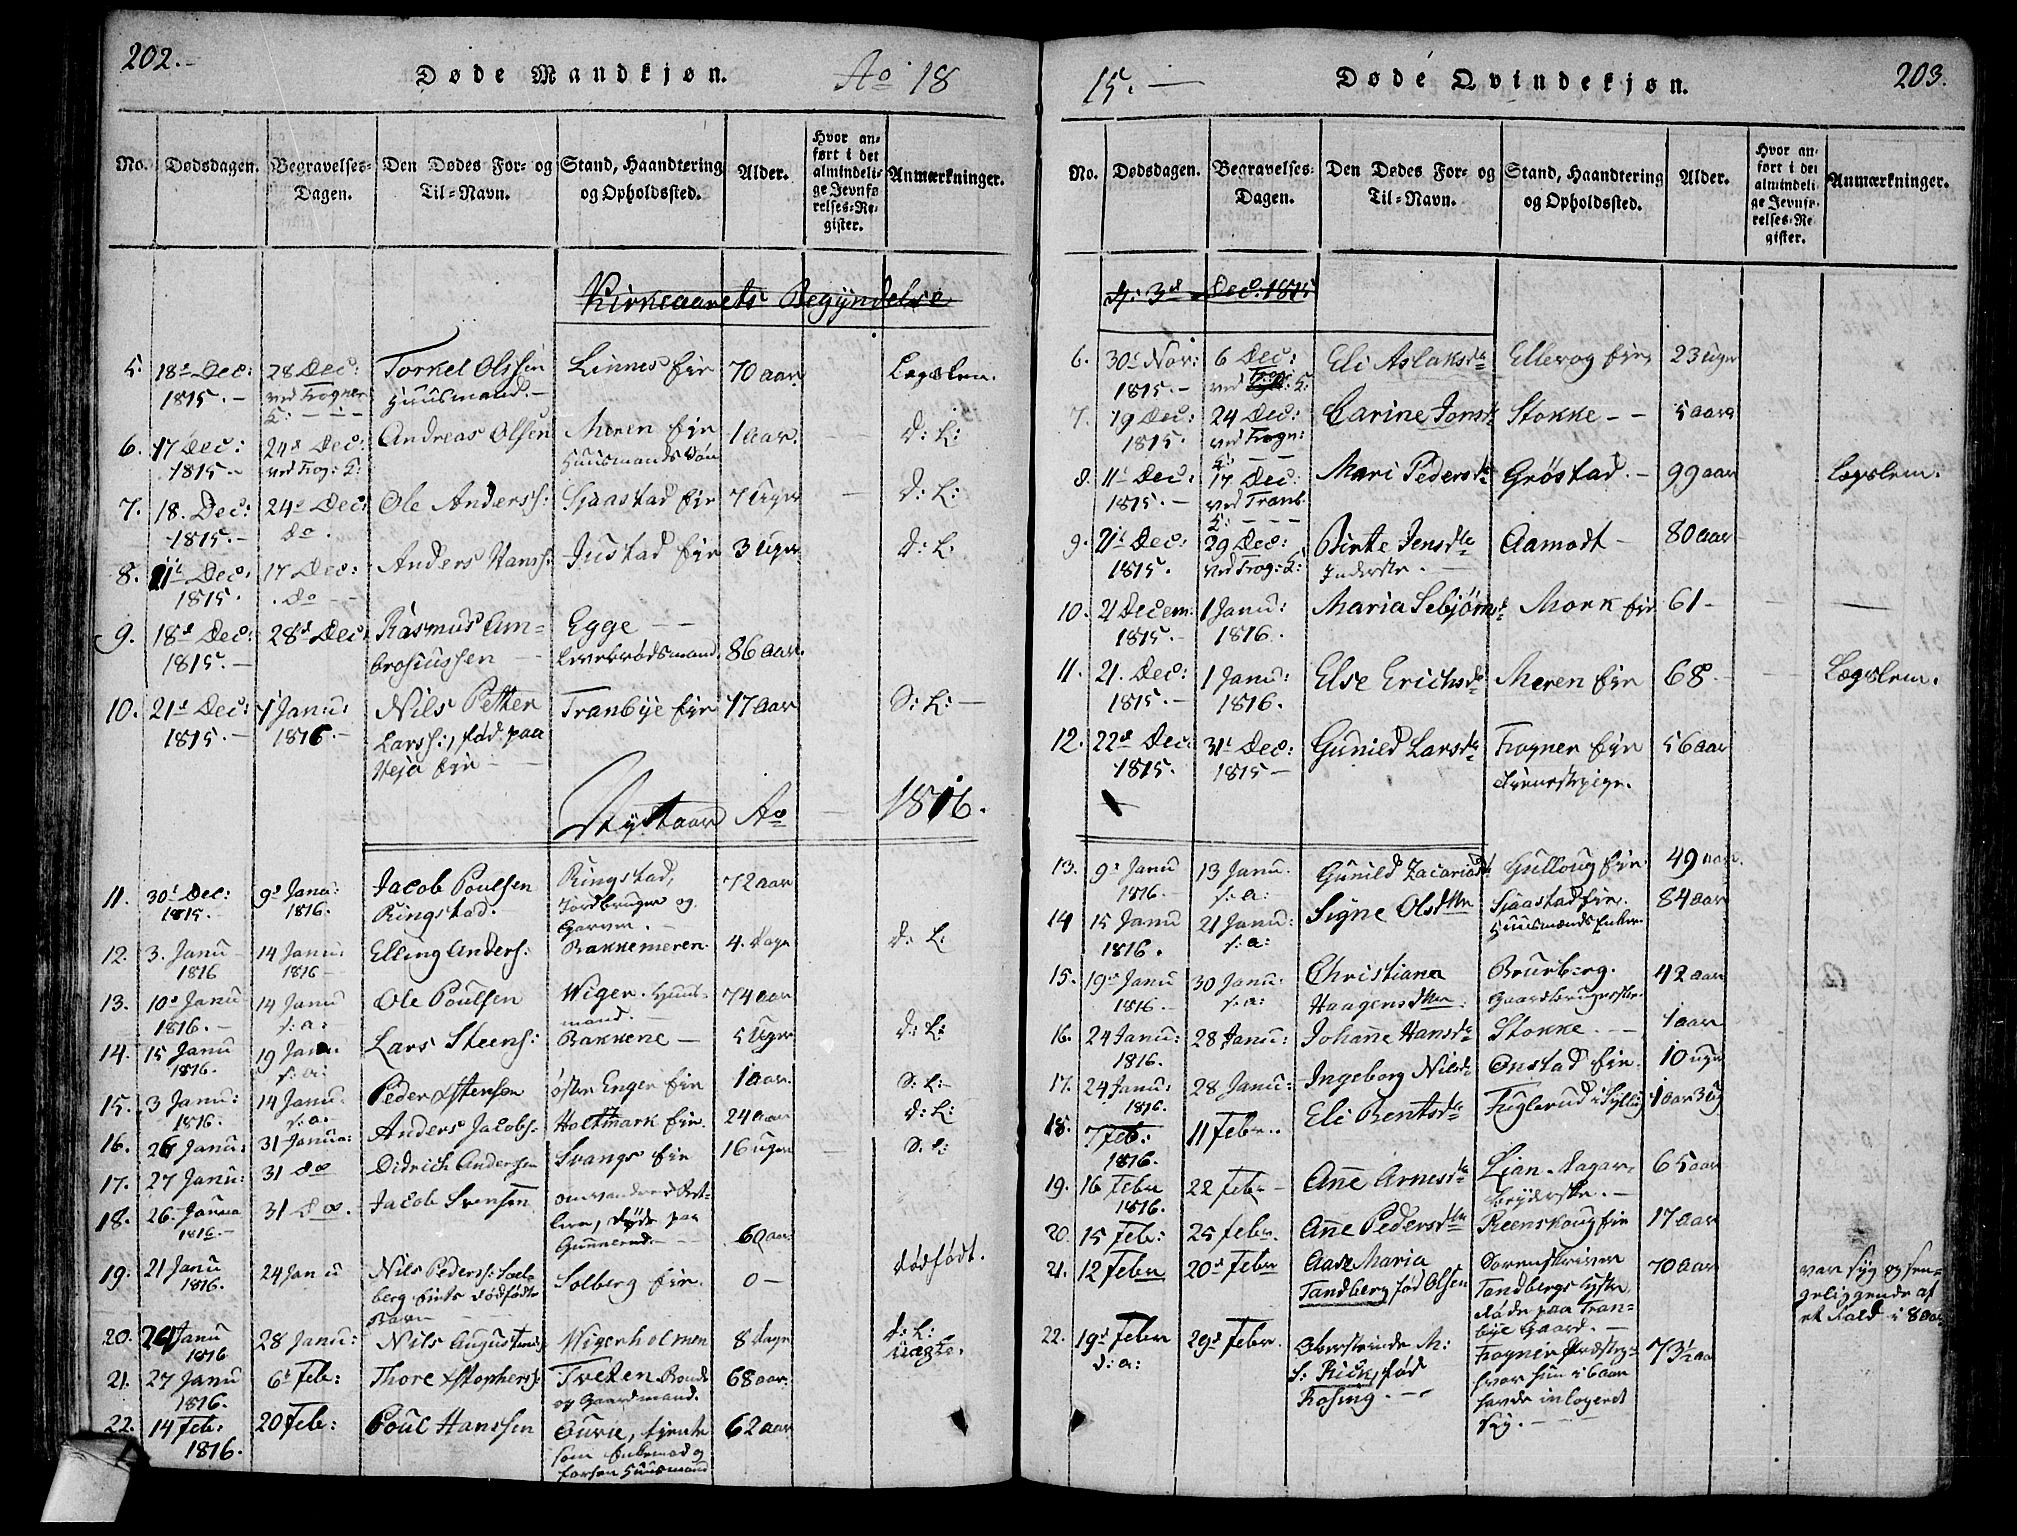 202.-
Døde Mandkjøn.
Ao 18
No.
Dødsdagen.
Begravelses-Dagen.
Den Dødes For- og Til-Navn.
Stand, Haandtering og Opholdssted.
Alder.
Hvor anført i det almindelige Jevnførelses-Register.
Anmærkninger.
Kirkeaarets Begÿndelse
5. 18d Dec: 1815.- 28 Dec: ved Frogner K: Torkel Olssen Huusmand.- Linnes Eie 70 aar. Lægslem.
6. 17 Dec: 1815.- 24d Dec: ved Frog: K: Andreas Olsen Meren Eie Huusmands Søn 1 aar. d: L:
7. 18. Dec: 1815.- 24d Dec: do. Ole Anderss: Gjaastad Eie 7 Uger d: L:
8. 11d Dec: 1815. 17 Dec: do Anders Hanss: Justad Eie 3 Uger d: L:
9. 18d Dec: 1815.- 28d Dec: Rasmus Ambrosiussen Egge Livebrødsmand. 86 aar.
10. 21d Dec: 1815.- 1 Janu: 1816.- Nils Petter Larss:, fød paa Heja Eie Tranbÿe Eie 17 aar S: L:-
Nÿtaar Ao 1816.
11. 30d Dec: 1815.- 9d Janu: 1816. Jacob Poulsen Ringstad.- Ringstad, Jordbruger og Garver.- 72 aar
12. 3. Janu 1816 14 Janu: 1816- Elling Anders: Bakkemeren. 4. dage d: L:
13. 10d Janu 1816.- 14 Janu s: a: Ole Poulsen Wiger. Huusmand. 74 aar
14. 15 Janu 1816. 19 Janu. s: a: Lars Steens: Bakkene- 5 Uger d: L:
15. 3 Janu: 1816. 14 Janu: s: a: Peder Xstensen østre Enger Eie 1 aar. S: L:-
16. 26 Janu: 31 Janua: Anders Jacobs: Holtmark Eie. 24 aar d: L:
17. 27 Janu: 31 do Didrich Andersen Svangs Eie 16 uger S: L:
18. 26. Janua 1816.- 31 do. Jacob Svensen omvandrende , døde paa Gunnerud.- 60 aar
19. 21 Janu 1816. 24 Janu Nils Peders: Solberg Eiets dødfødte Barn Solberg Eie. 0- dødfødt.
20. 24 Janu 1816 28 Janu: Nils Augustins: Wigerholmen 8 dage d: L: uægte.
21. 27 Janu 1816. 6d Feb: Thore Xstophers: Tveten Bonde og Gaardmand. 68 aar.
22. 14 Feb: 1816. 20 Feb: Poul Hanssen Ourie, tjente som Enkemand og forhen Huusmand 62 aar
15.-
Døde Qvindekjøn.
203.
No.
Dødsdagen.
Begravelses-Dagen.
Den Dødes For- og Til-Navn.
Stand, Haandtering og Opholdssted.
Alder.
Hvor anført i det almindelige Jevnførelses-Register.
Anmærkninger.
d: 3d Dec: 1815
6. 30d Nov: 1815.- 6 Dec: ved Frog: K: Eli Aslaksd. Ellerog Eie, 23 uger
7. 19 Dec: 1815. 24 Dec: ved Frogn: K: Carine Jonsd. Stokke-- 5 aar
8. 11d Dec: 1815.- 17 Dec: ved Tranb: K: Mari Pedersd. Grøstad.- 99 aar Lægslem.
9. 21d Dec: 1815. 29 Dec: ved Frog: K: Birte Jensd. Inderste.- Aamodt- 80 aar
10. 21 Decem: 1815.- 1 Janu: 1816. Maria Sebjørnsd: Mork Eie 61-
11. 21. Dec: 1815.- 1 Janu: 1816. Else Erichsd. Meren Eie 68.- Lægslem.
12. 22d Dec: 1815. 31d Dec: 1815- Gunild Larsd. Frogner Eie Tjenestepige. 56 aar
13. 9d Janu 1816.- 13 Janu: s: a: Gunild Zacariasd: Gulloug Eie 49 aar.
14 15 Janu 1816. 21 Janu: s: a: Signe Olsdtter Gjaastad Eie. Huusmands Enke. 84 aar
15. 19d Janu 1816. 30 Janu: s: a: Christiana Haagensdtter. Brurberg. Gaardbrugerske. 42 aar
16. 24 Janu: 1816. 28 Janu: Johanne Hansd. Stokke.-- 1 aar
17. 24 Janu: 1816. 28 Janu: Ingeborg Nilsd. Onstad Eie. 10 uger
18. 7 Feb: 1816. 11 Febr.. Eli Bentsd. Fuglerud i Sylling 1 aar 3 ug
19. 16 Febr 1816. 22 Febr- Anne Arnesd. Lian.- 65 aar
20. 15 Feb: 25 Febr. Anne Pedersdtter Reenskoug Eie 17 aar
21. 12 Febr 20d Febr Aase Maria Tandberg fød Olsen Sorenskriver Tandbergs døde paa Tranbye Gaard.- 70 aar var syg og sengeliggende af et Fald i 8 aar
22. 19d Febr s: a: 29d Febr. Oberstinde M: S: Rick, fød Rosing.-- Frogner Præsteg: hvor hun i 6 aar havde inlogeret sig. 73½ aar